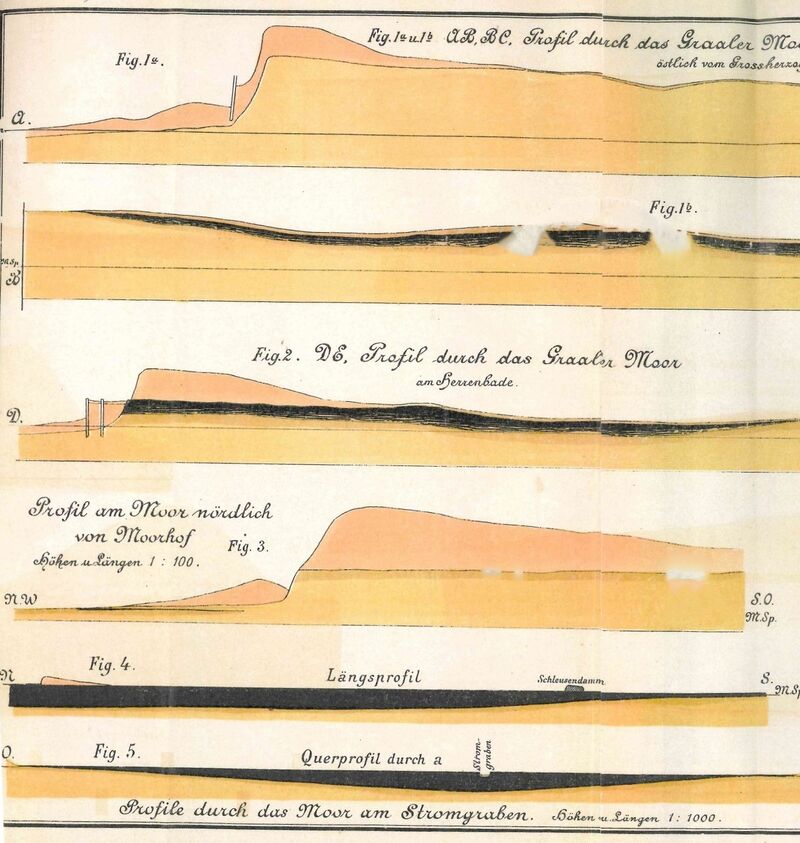 Fig. 1a u. 1b AB, BC, Profil durch das Graaler
östlich vom
Fig. 1a.
A.
Fig. 1b.
M.Sp.
B
Fig. 2. DE, Profil durch das Graaler Moor
am Herrenbade.
D.
Profil am Moor nördlich
von Moorhof
Höhen u. Längen 1 : 100.
Fig. 3.
N.W
S.O.
M.Sp.
Fig. 4.
Längsprofil
Schleusendamm
N
S.
M.Sp
O.
Fig. 5.
Querprofil durch a
Strom-
graben
Profile durch das Moor am Stromgraben. Höhen u. Längen 1 : 1000.